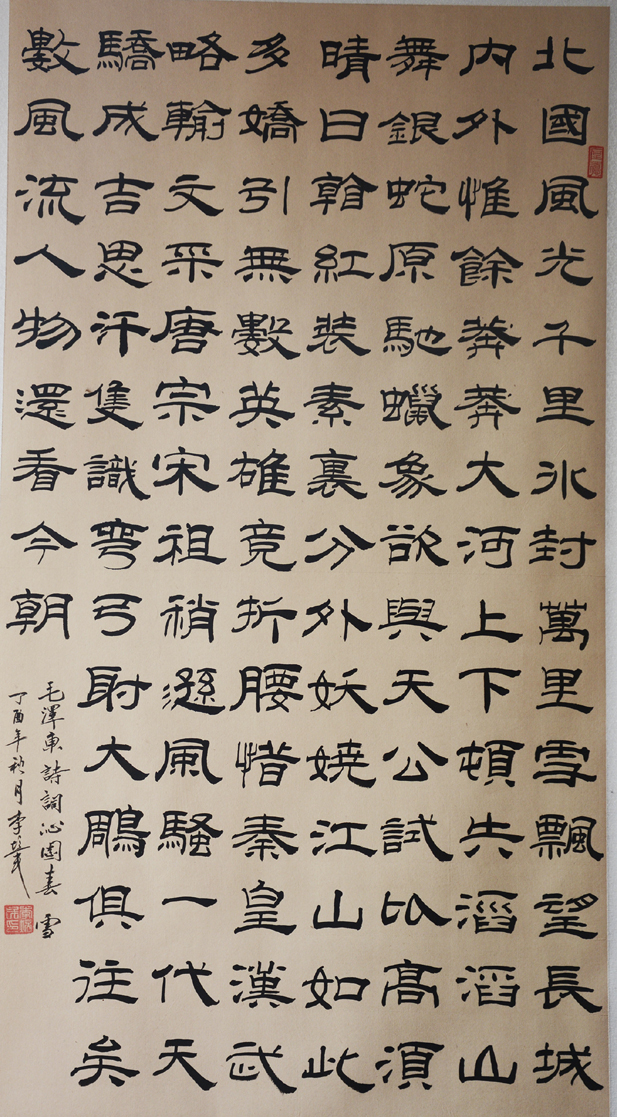 北國風光千里冰封萬里雪飄望長城
內外惟餘莽莽大河上下頓失滔滔山
舞銀蛇原馳蠟象欲與天公試比高須
晴日紅裝素裏分外妖嬈江山如此
多嬌引無數英雄竟折腰惜秦皇漢武
略輸文采唐宗宋祖稍遜風騷一代天
驕成吉思汗隻識彎弓射大鵰俱往矣
數風流人物還看今朝
毛澤東詩詞沁園春 雪
丁酉年秋月李